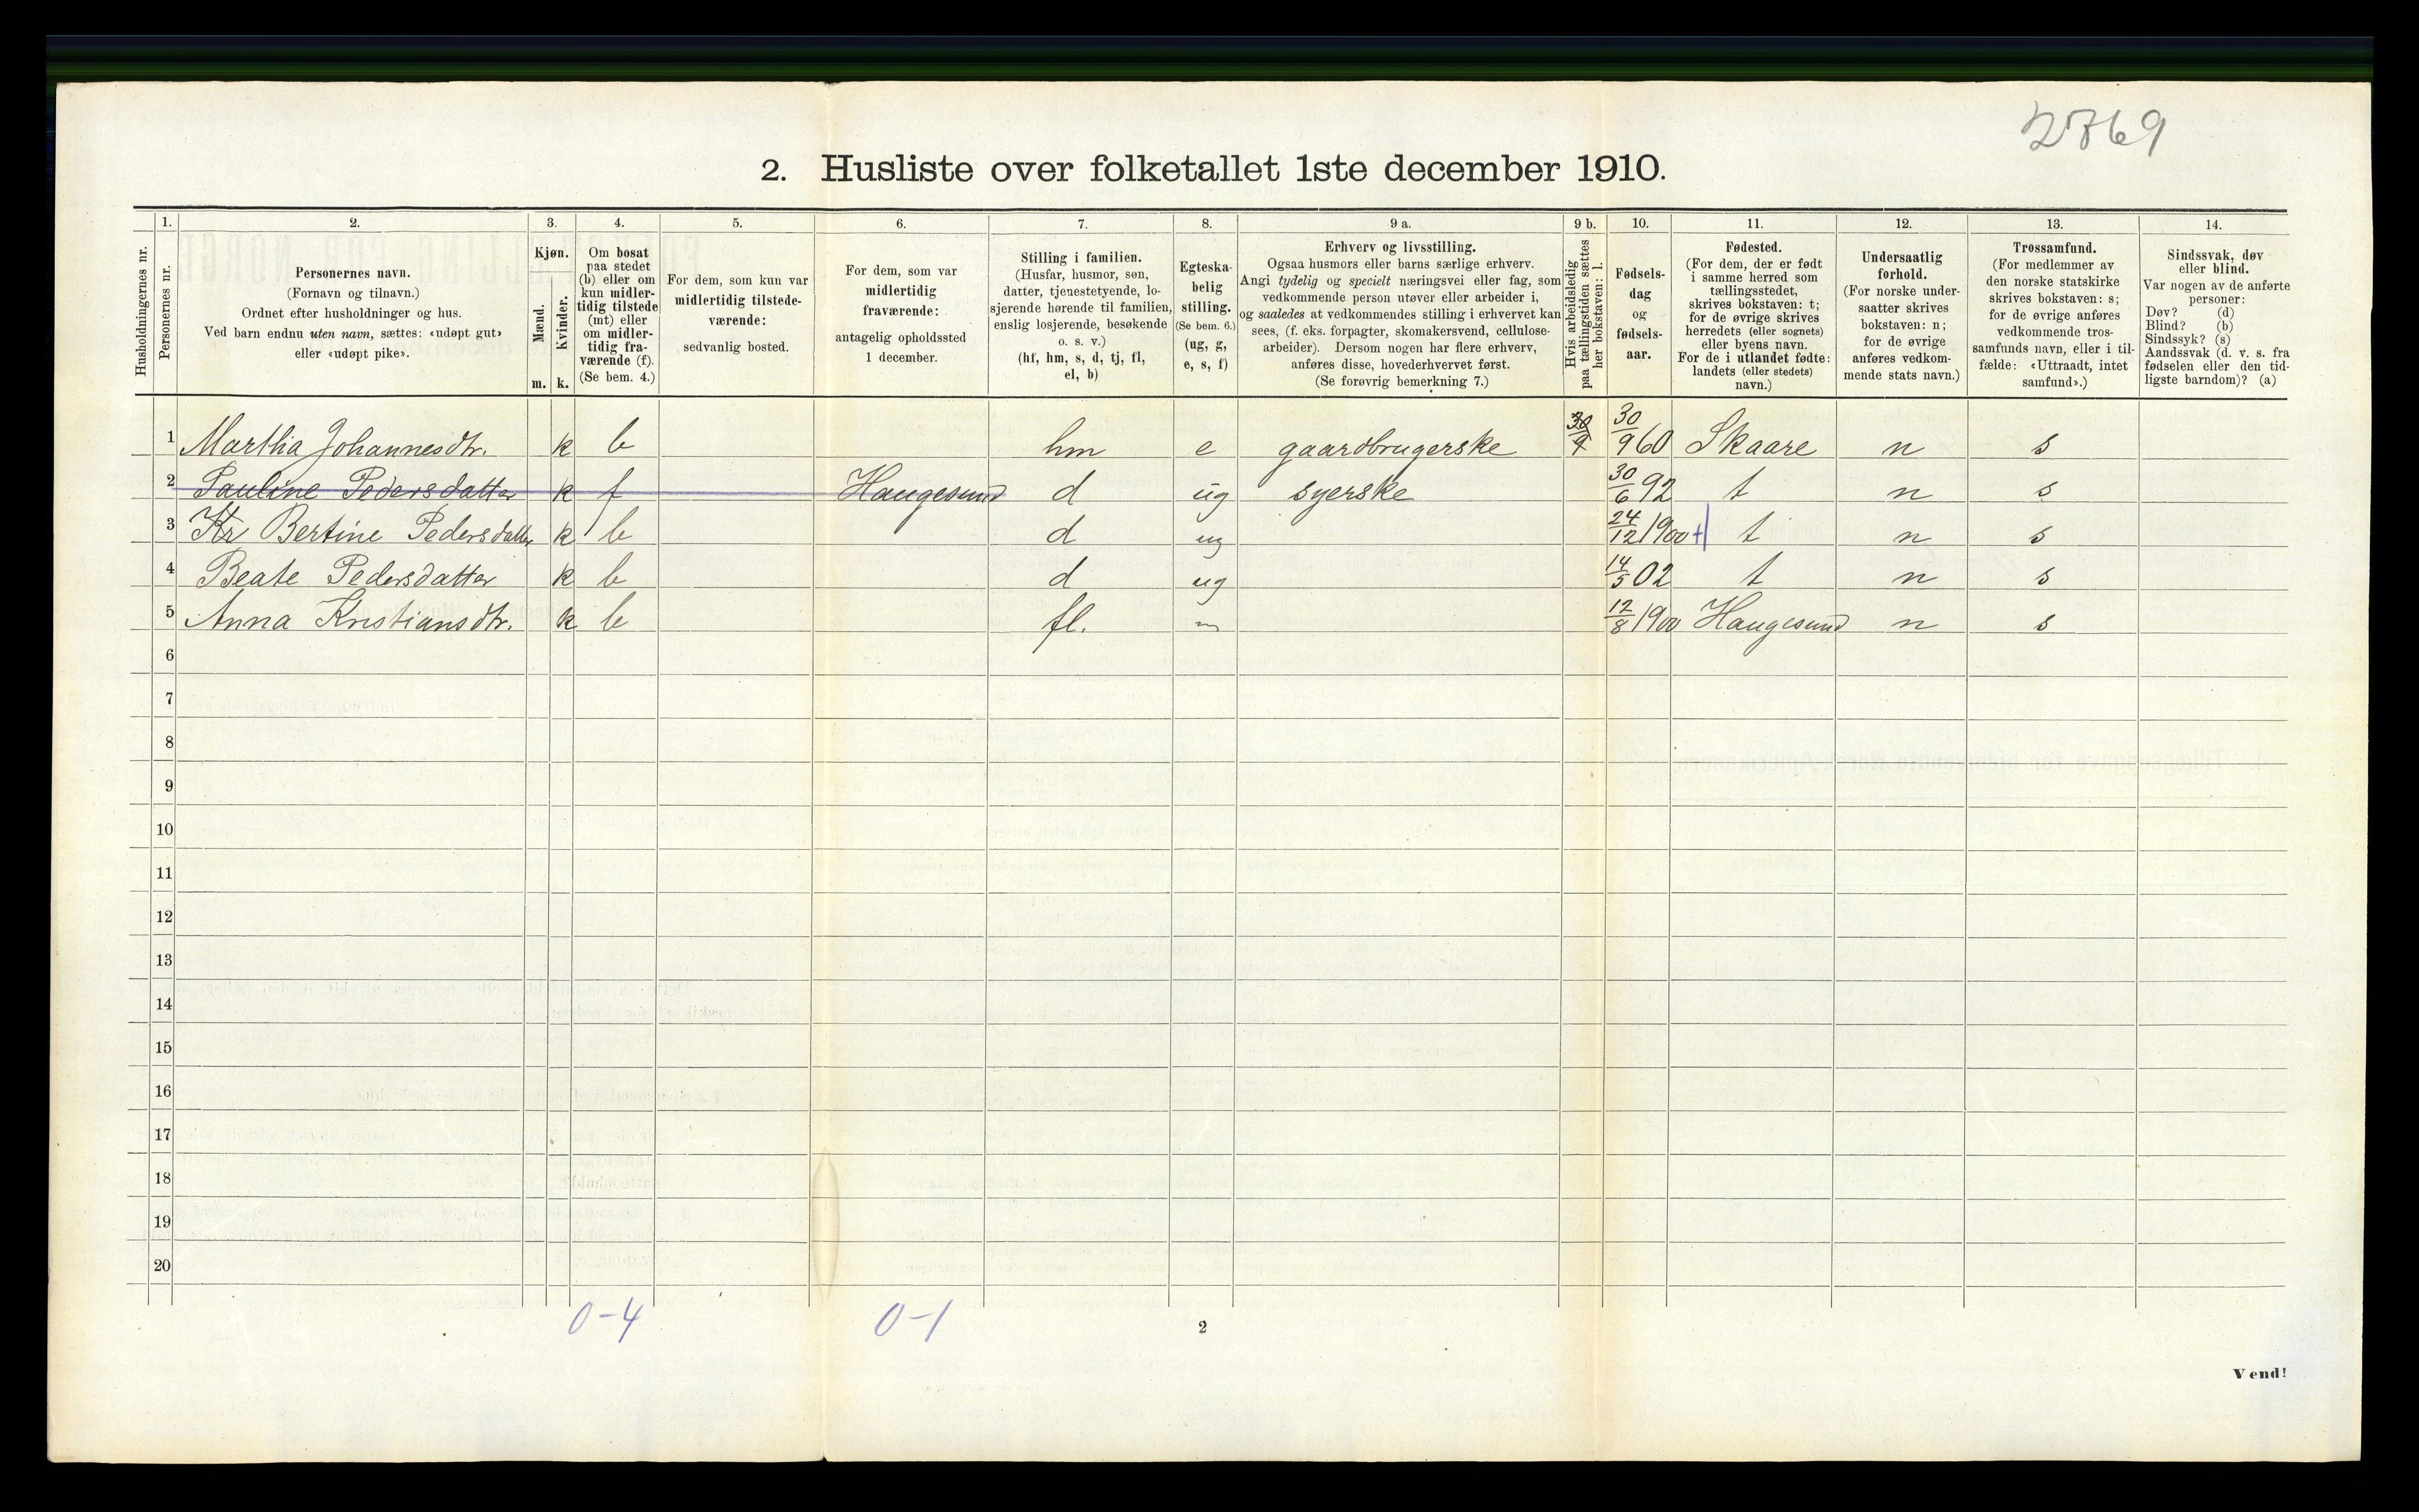 2769
2. Husliste over folketallet 1ste december 1910.
Husholdningernes nr.
1.
Personernes nr.
2.
Personernes navn.
(Fornavn og tilnavn.)
Ordnet efter husholdninger og hus.
Ved barn endnu uten navn, sættes: «udøpt gut»
eller «udøpt pike».
3.
Kjøn.
Mænd.
Kvinder.
m. k.
4.
Om bosat
paa stedet
(b) eller om
kun midler-
tidig tilstede
(mt) eller
om midler-
tidig fra-
værende (f).
(Se bem. 4.)
5.
For dem, som kun var
midlertidig tilstede-
værende:
sedvanlig bosted.
6.
For dem, som var
midlertidig
fraværende:
antagelig opholdssted
1 december.
7.
Stilling i familien.
(Husfar, husmor, søn,
datter, tjenestetyende, lo-
sjerende hørende til familien,
enslig losjerende, besøkende
o. s. v.)
(hf, hm, s, d, tj, fl,
el, b)
8.
Egteska-
belig
stilling.
(Se bem. 6.)
(ug, g,
e, s, f)
9 a.
Erhverv og livsstilling.
Ogsaa husmors eller barns særlige erhverv.
Angi tydelig og specielt næringsvei eller fag, som
vedkommende person utøver eller arbeider i,
og saaledes at vedkommendes stilling i erhvervet kan
sees, (f. eks. forpagter, skomakersvend, cellulose-
arbeider). Dersom nogen har flere erhverv,
anføres disse, hovederhvervet først.
(Se forøvrig bemerkning 7.)
9 b.
Hvis arbeidsledig
paa tællingstiden sættes
her bokstaven: l.
10.
Fødsels-
dag
og
fødsels-
aar.
11.
Fødested.
(For dem, der er født
i samme herred som
tællingsstedet,
skrives bokstaven: t;
for de øvrige skrives
herredets (eller sognets)
eller byens navn.
For de i utlandet fødte:
landets (eller stedets)
navn.)
12.
Undersaatlig
forhold.
(For norske under-
saatter skrives
bokstaven: n;
for de øvrige
anføres vedkom-
mende stats navn.)
13.
Trossamfund.
(For medlemmer av
den norske statskirke
skrives bokstaven: s;
for de øvrige anføres
vedkommende tros-
samfunds navn, eller i til-
fælde: «Uttraadt, intet
samfund».)
14.
Sindssvak, døv
eller blind.
Var nogen av de anførte
personer:
Døv? (d)
Blind? (b)
Sindssyk? (s)
Aandssvak (d. v. s. fra
fødselen eller den tid-
ligste barndom)? (a)
1 Martha Johannesdtr. k b hm e gaardbrugerske 30/9 30/9 60 Skaare n s
2 Pauline Pedersdatter k f Haugesund d ug syerske 30/6 92 t n s
3 Kr Bertine Pedersdatter k b d ug 24/12 1900 + t n s
4 Beate Pedersdatter k b d ug 14/5 02 t n s
5 Anna Kristiansdtr. k b fl. 12/8 1900 Haugesund n s
6
7
8
9
10
11
12
13
14
15
16
17
18
19
20
0-4 0-1
2
Vend!